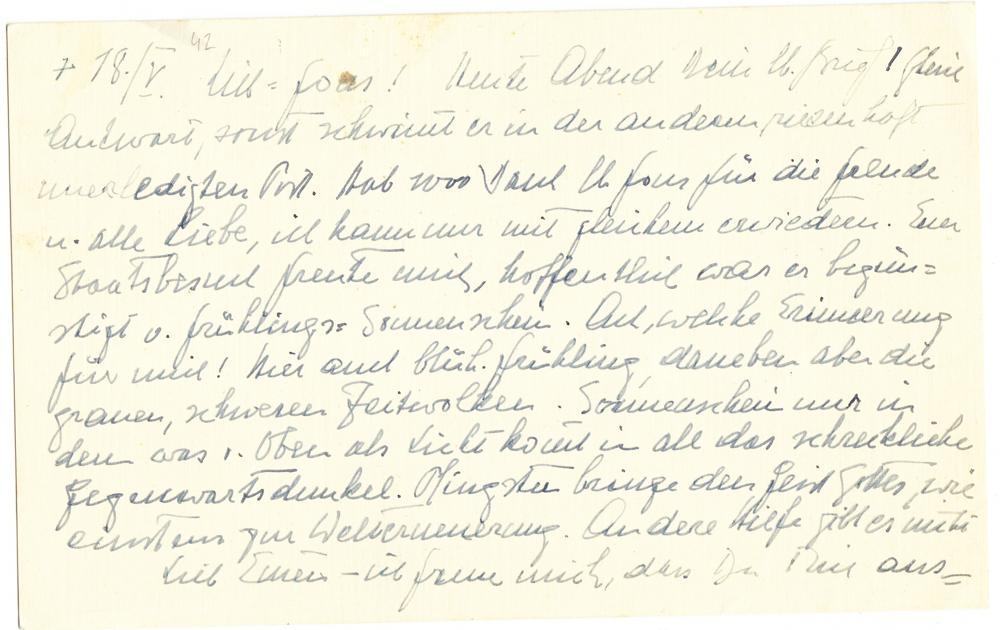 + 18./V. 42 Lieb = Heute Abend Dein lb. Brief! Gleich
Antwort, sonst schwimt er in der anderen riesenhaft
unerledigten Post. Hab 1000 Dank lb. für die Freude
u. alle Liebe, ich kann nur mit gleichem erwiedern. Euer
Staatsbesuch freute mich, hoffentlich war er begün=
stigt v. Frühlings= Sonnenschein. Ach, welche Erinnerung
für mich! Hier auch blüh. Frühling, daneben aber die
grauen, schweren Zeitwolken. Sonnenschein nur in
dem was v. Oben als Licht komt in all das schreckliche
Gegenwartsdunkel. Pfingsten bringe den Geist Gottes, wie
einstens zur Welterneuerung. Andere Hilfe gibt es nicht
Lieb – ich freue mich, dass Du Dich aus=